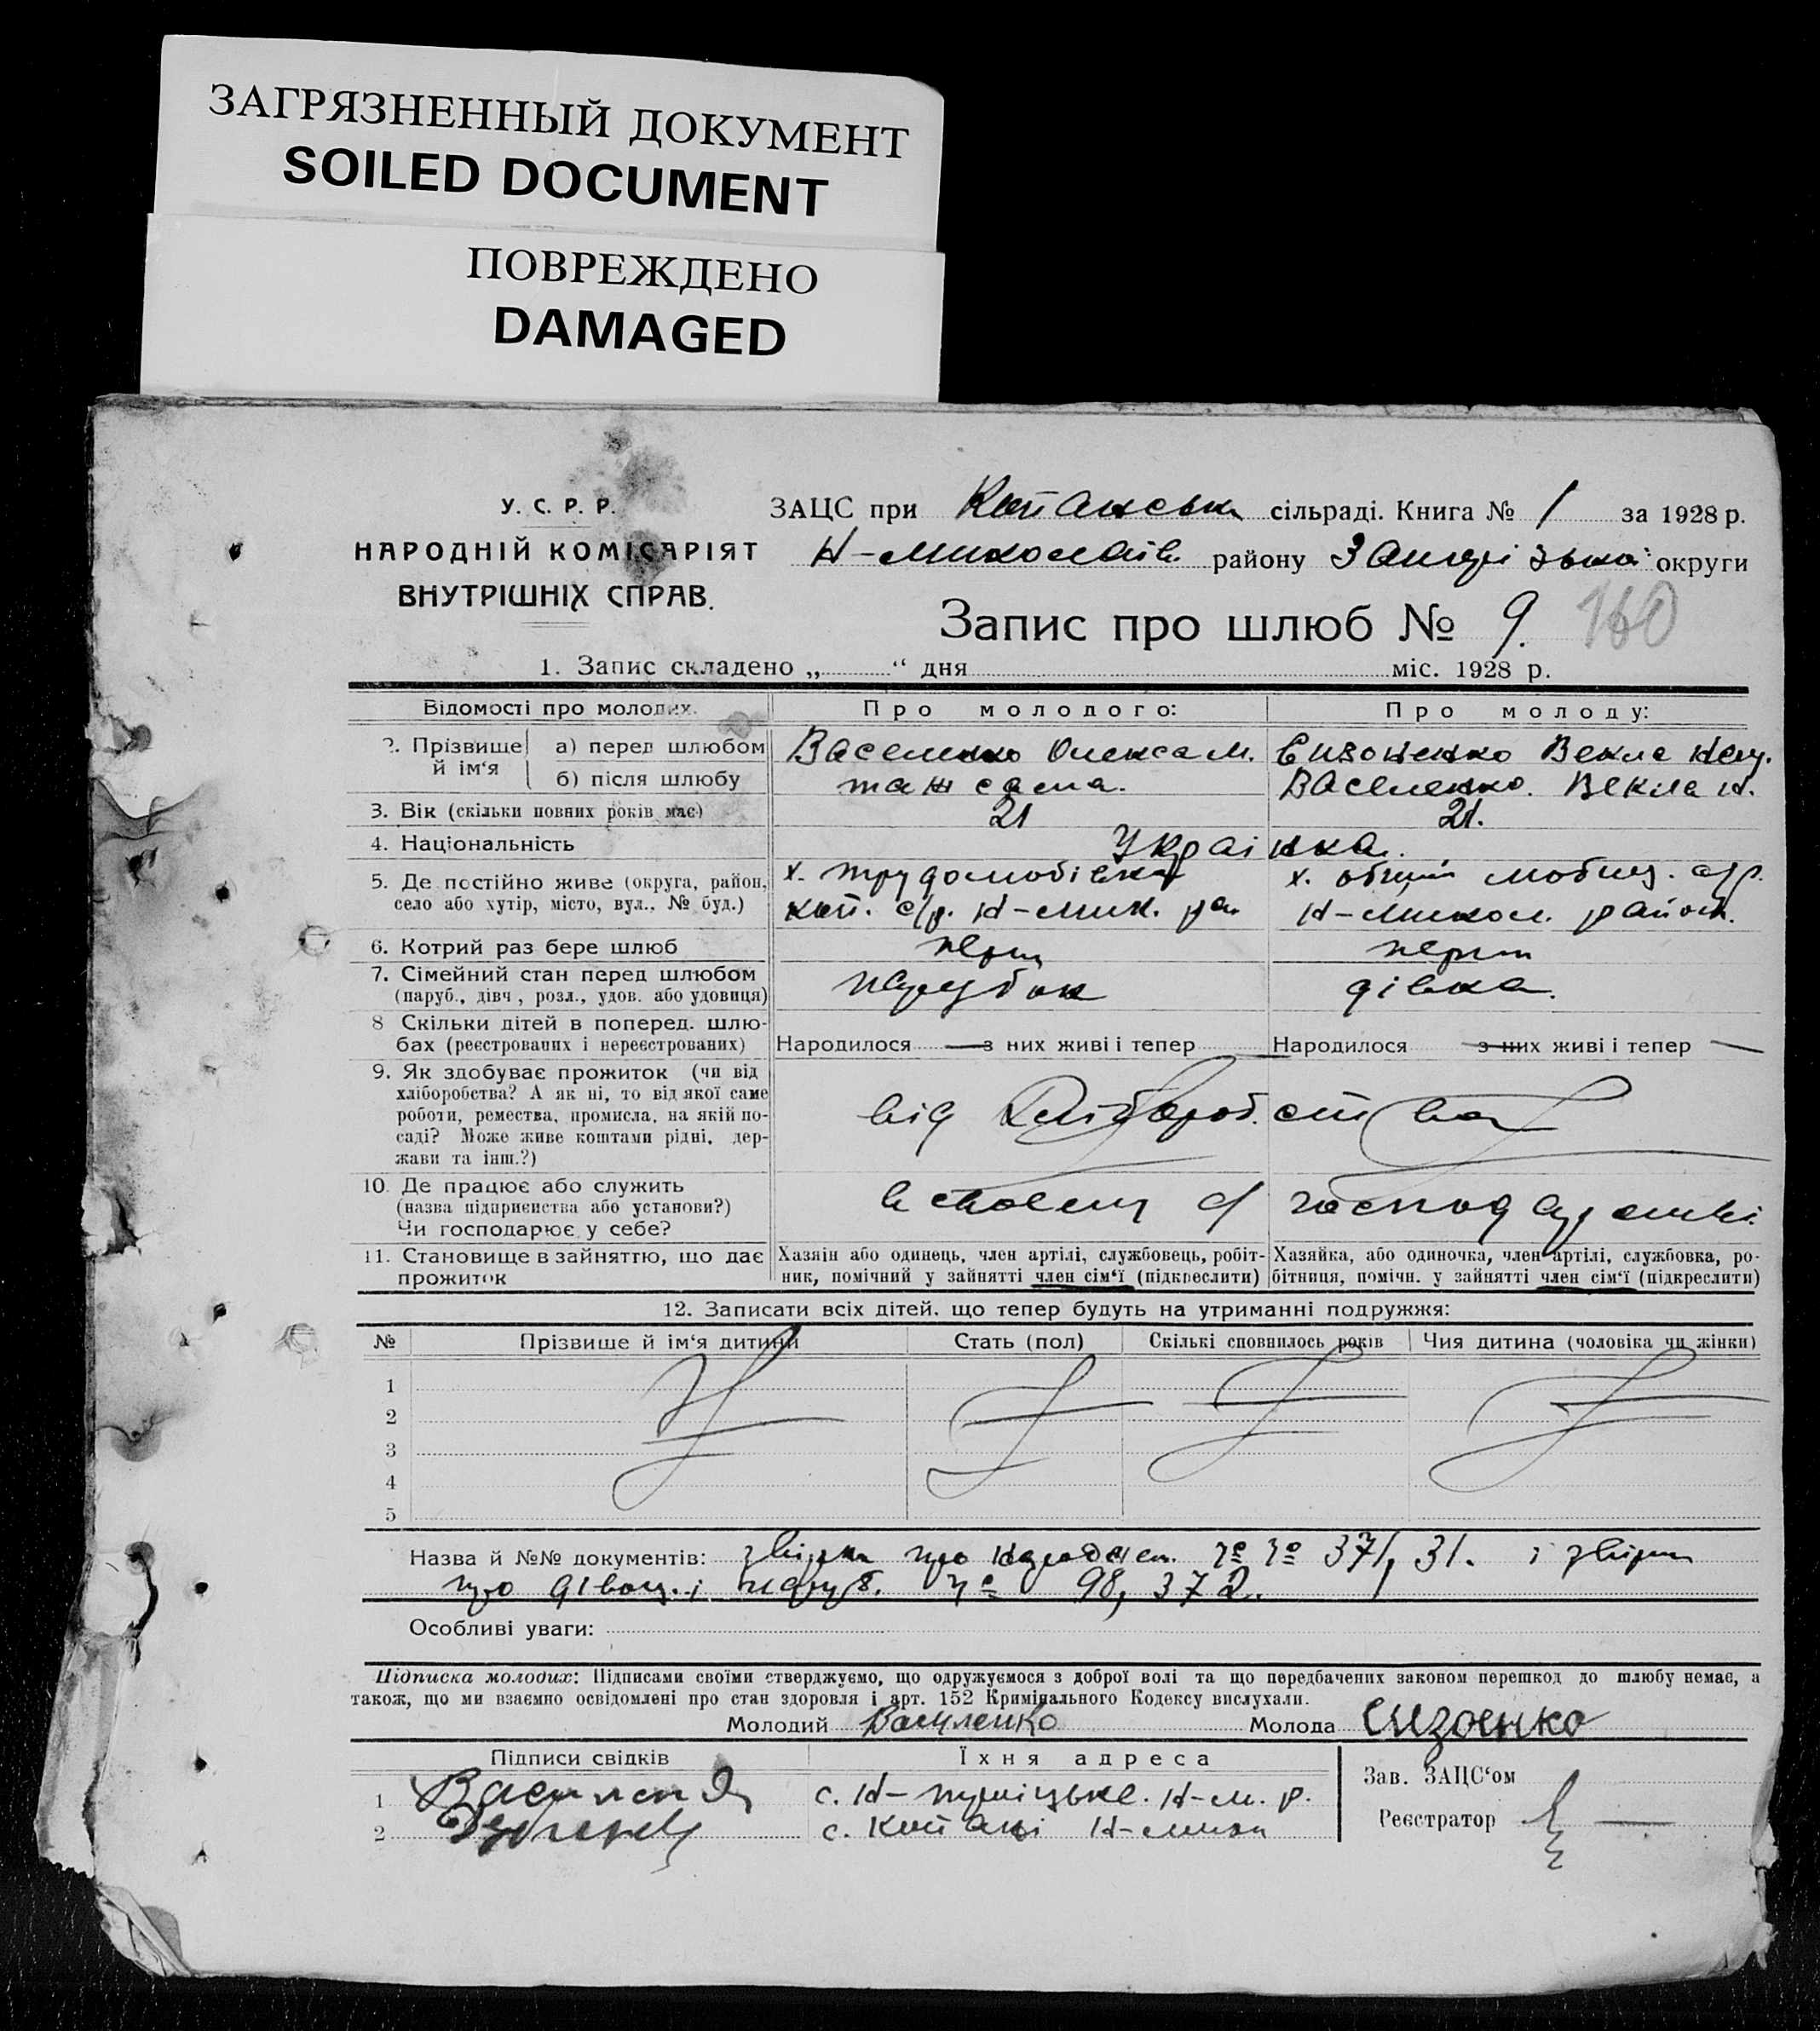 ЗАГРЯЗНЕННЫЙ ДОКУМЕНТ
SOILED DOCUMENT
ПОВРЕЖДЕНО
DAMAGED
У. С. Р. Р.
НАРОДНІЙ КОМІСАРІЯТ
ВНУТРІШНІХ СПРАВ.
ЗАЦС при Копанськ сільраді. Книга № 1 за 1928 р.
Н-Миколаїв. району Запорізької округи
Запис про шлюб № 9. 160
1. Запис складено „ “ дня міс. 1928 р.
Відомості про молодих. Про молодого: Про молоду:
2. Прізвище й ім‘я а) перед шлюбом Василенко Олекса М. Сизоненко Векла
б) після шлюбу та ж сама. Василенко Векла Н.
3. Вік (скільки повних років має) 21 21.
4. Національність Українка.
5. Де постійно живе (округа, район, село або хутір, місто, вул., № буд.) х. Трудолюбівка х.
коп. с/р. Н-Мик. ра Н-Микол. район.
6. Котрий раз бере шлюб перш перш
7. Сімейний стан перед шлюбом (паруб., дівч, розл., удов. або удовиця) парубок дівка.
8 Скільки дітей в поперед. шлюбах (реєстрованих і нереєстрованих) Народилося — з них живі і тепер Народилося з них живі і тепер —
9. Як здобуває прожиток (чи від хліборобства? А як ні, то від якої саме роботи, ремества, промисла, на якій посаді? Може живе коштами рідні, держави та інш.?) від хліборобства
10. Де працює або служить (назва підприємства або установи?) Чи господарює у себе? в своєму с/господарстві.
11. Становище в зайняттю, що дає прожиток
Хазяін або одинець, член артілі, службовець, робітник, помічний у зайнятті член сім‘ї (підкреслити)
Хазяйка, або одиночка, член артілі, службовка, робітниця, помічн. у зайнятті член сім‘ї (підкреслити)
12. Записати всіх дітей, що тепер будуть на утриманні подружжя:
№ Прізвище й ім‘я дитини Стать (пол) Скількі сповнилось років Чия дитина (чоловіка чи жінки)
1
2
3
4
5
Назва й №№ документів: про народжен. №№ 371, 31. і
про дівоц. і паруб. № 98, 372.
Особливі уваги:
Підписка молодих: Підписами своїми стверджуємо, що одружуємося з доброї волі та що передбачених законом перешкод до шлюбу немає, а
також, що ми взаємно освідомлені про стан здоровля і арт. 152 Кримінального Кодексу вислухали.
Молодий Василенко Молода Сизоенко
Підписи свідків Їхня адреса
1 с. Н- Н-М. р.
2 с. Копані Н-Мик
Зав. ЗАЦС‘ом
Реєстратор